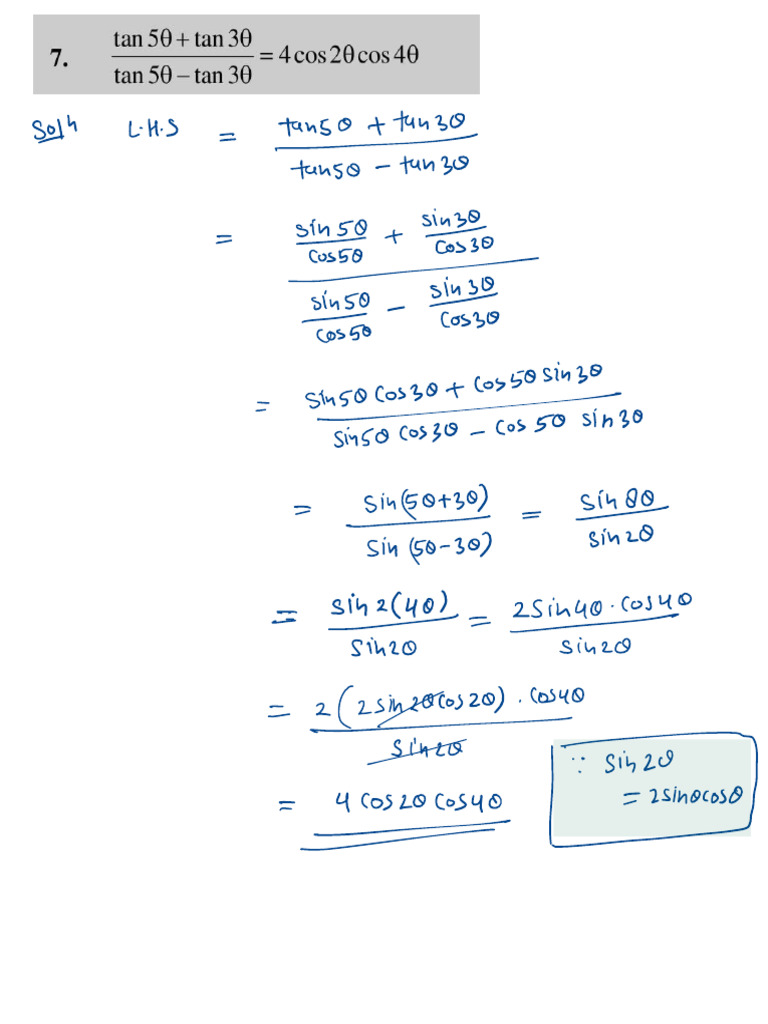 7. (tan 5θ + tan 3θ)/(tan 5θ − tan 3θ) = 4 cos 2θ cos 4θ
Solⁿ L.H.S = (tan5θ + tan3θ)/(tan5θ − tan3θ)
= (sin5θ/cos5θ + sin3θ/cos3θ)/(sin5θ/cos5θ − sin3θ/cos3θ)
= (sin5θ cos3θ + cos5θ sin3θ)/(sin5θ cos3θ − cos5θ sin3θ)
= sin(5θ+3θ)/sin(5θ−3θ) = sin8θ/sin2θ
= sin2(4θ)/sin2θ = 2sin4θ·cos4θ/sin2θ
= 2(2sin2θcos2θ)·cos4θ/sin2θ
∵ sin2θ
= 2sinθcosθ
= 4cos2θcos4θ